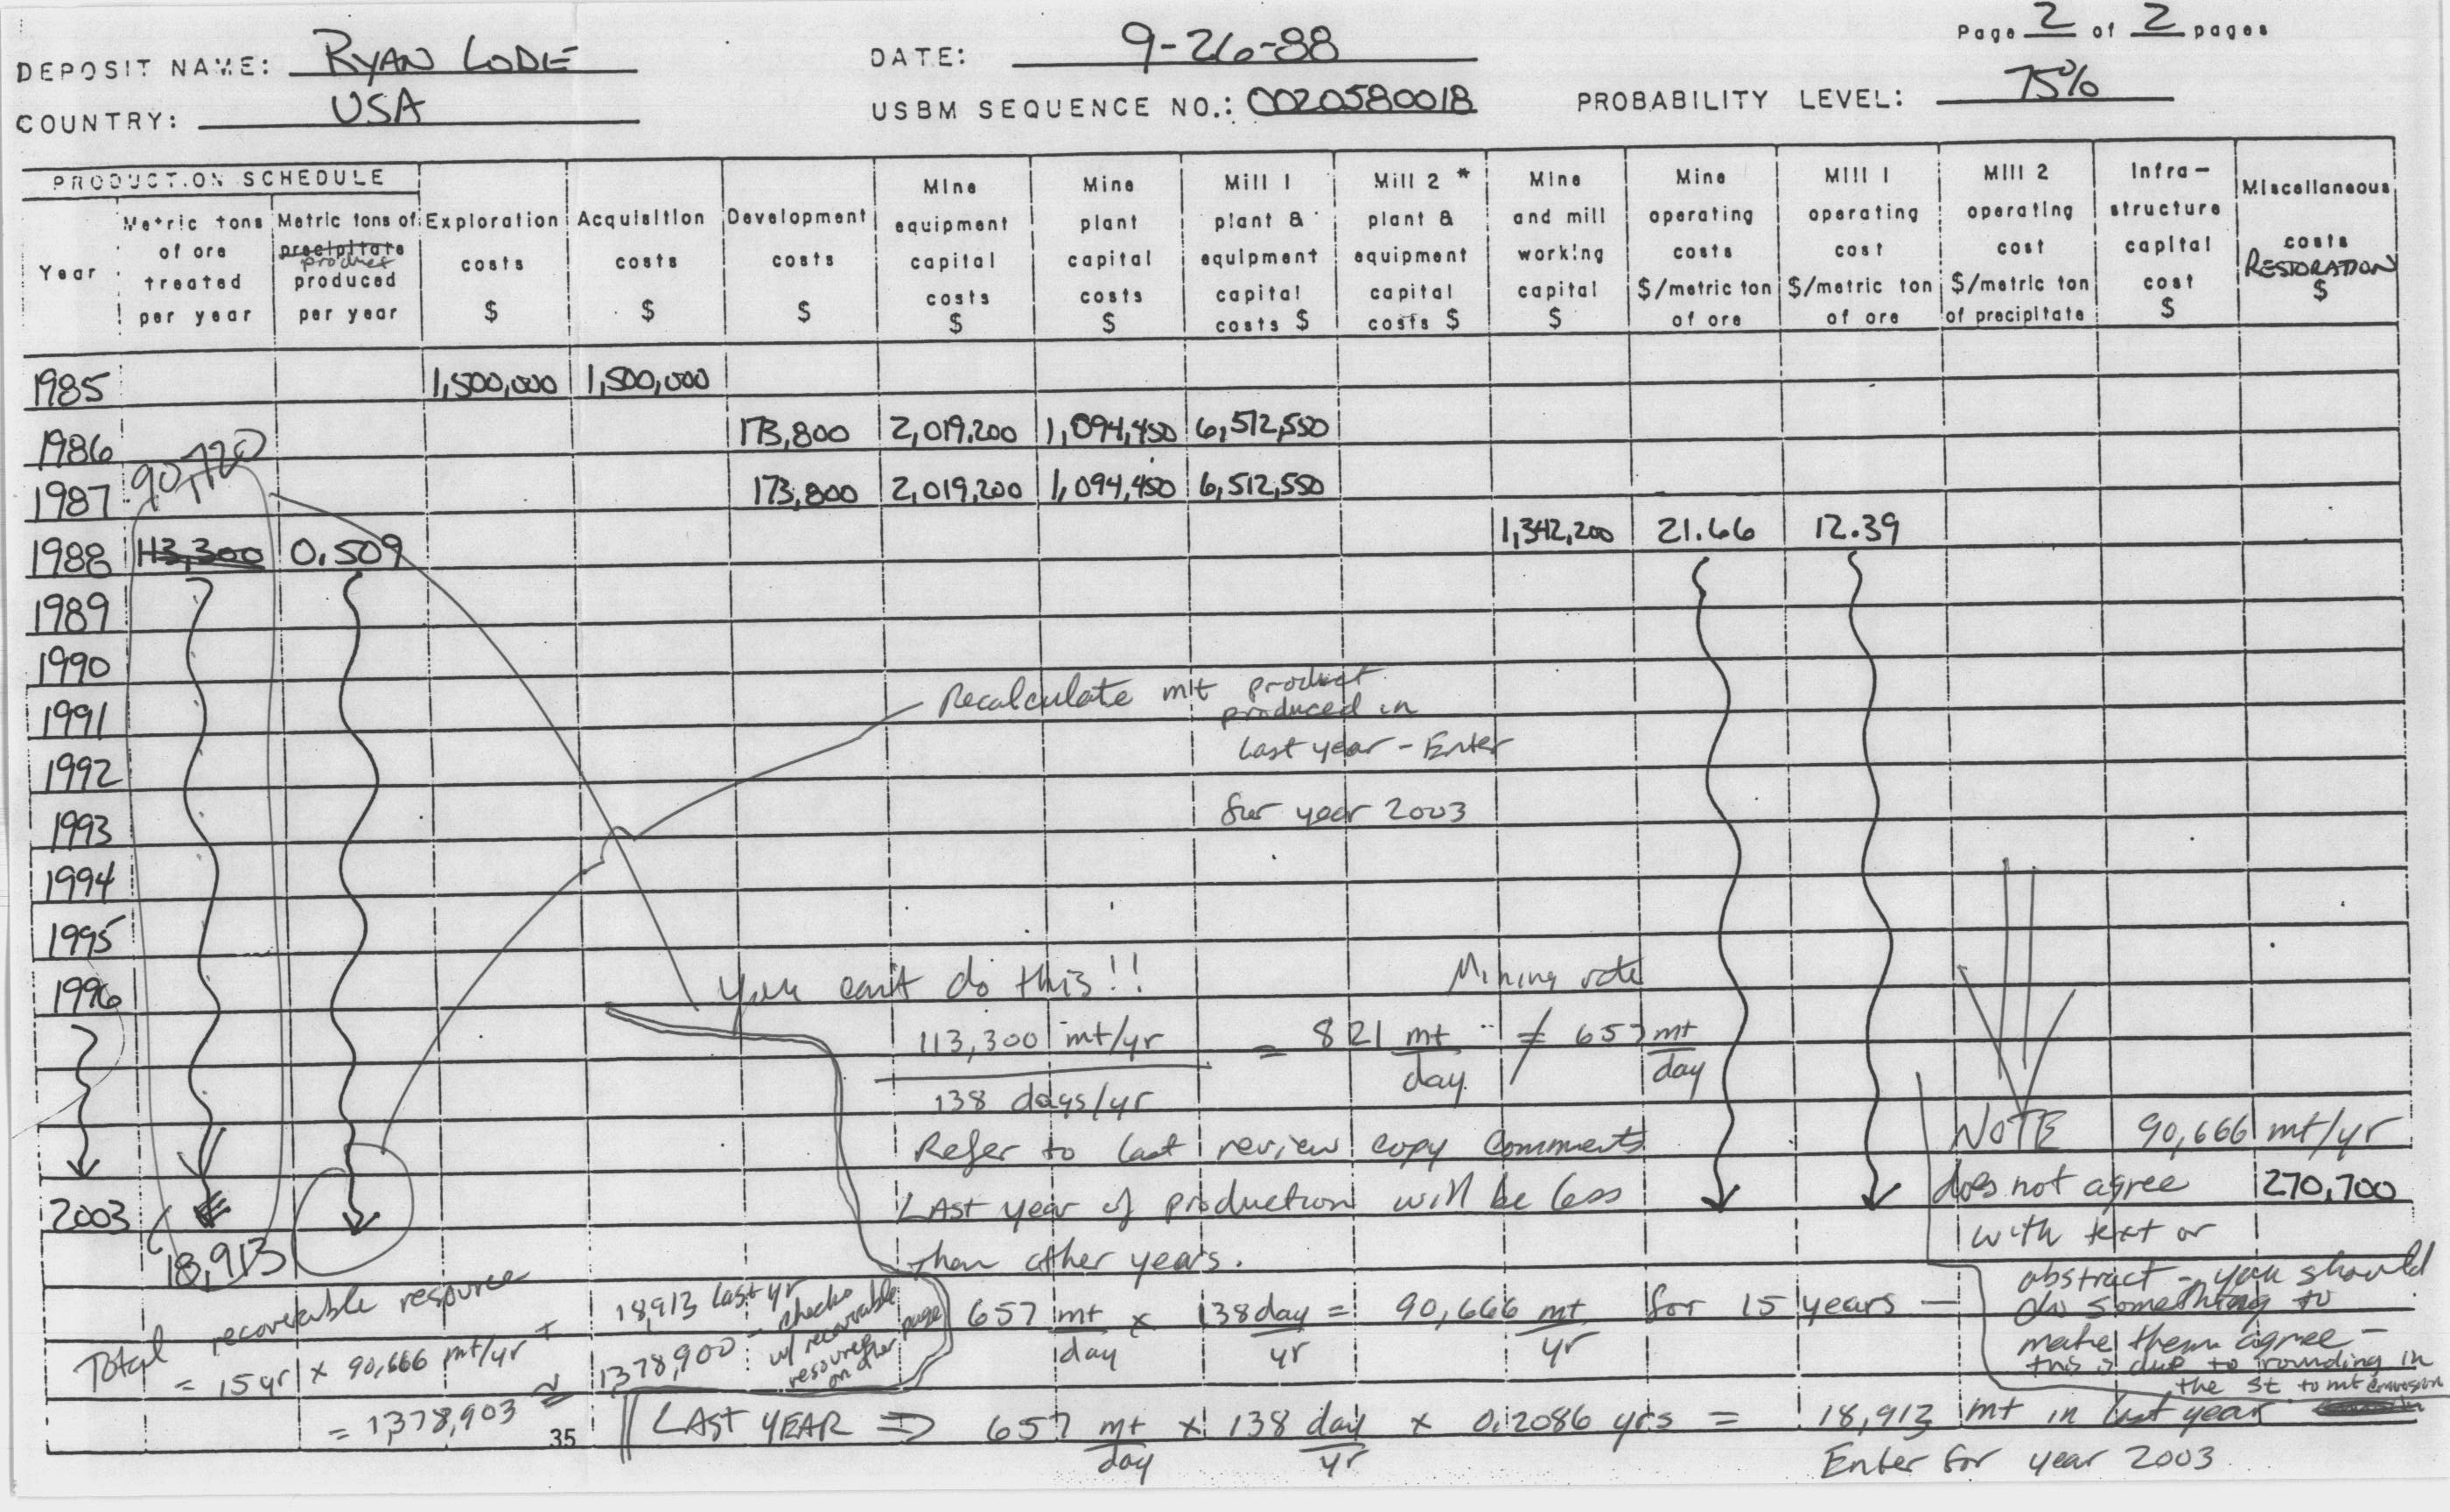 Page 2 of 2 pages
DEPOSIT NAME: RYAN LODE DATE: 9-26-88
COUNTRY: USA USBM SEQUENCE NO.: 0020580018 PROBABILITY LEVEL: 75%
PRODUCTION SCHEDULE
Year
Metric tons of ore treated per year
Metric tons of precipitate product produced per year
Exploration costs $
Acquisition costs $
Development costs $
Mine equipment capital costs $
Mine plant capital costs $
Mill 1 plant & equipment capital costs $
Mill 2 * plant & equipment capital costs $
Mine and mill working capital $
Mine operating costs $/metric ton of ore
Mill 1 operating cost $/metric ton of ore
Mill 2 operating cost $/metric ton of precipitate
Infra-structure capital cost $
Miscellaneous costs RESTORATION $
1985 1,500,000 1,500,000
1986 173,800 2,019,200 1,094,450 6,512,550
90,720
1987 173,800 2,019,200 1,094,450 6,512,550
1988 113,300 0.509 1,342,200 21.66 12.39
1989
1990
1991
1992
1993
1994
1995
1996
2003 270,700
18,913
Recalculate mt product
produced in
last year - Enter
for year 2003
You can't do this!! Mining rate
113,300 mt/yr = 821 mt ≠ 657 mt
138 days/yr day day
Refer to last review copy comments
Last year of production will be less
than other years.
657 mt x 138 day = 90,666 mt for 15 years -
day yr yr
NOTE 90,666 mt/yr
does not agree
with text or
abstract - you should
do something to
make them agree -
this is due to rounding in
the st to mt conversion
Total recoverable resource
= 15 yr x 90,666 mt/yr + 18,913 last yr
= 1,378,903 ≈ 1,378,900 - checks
w/ recoverable
resource
on other page
35
LAST YEAR ⇒ 657 mt x 138 day x 0.2086 yrs = 18,913 mt in last year
day yr
Enter for year 2003